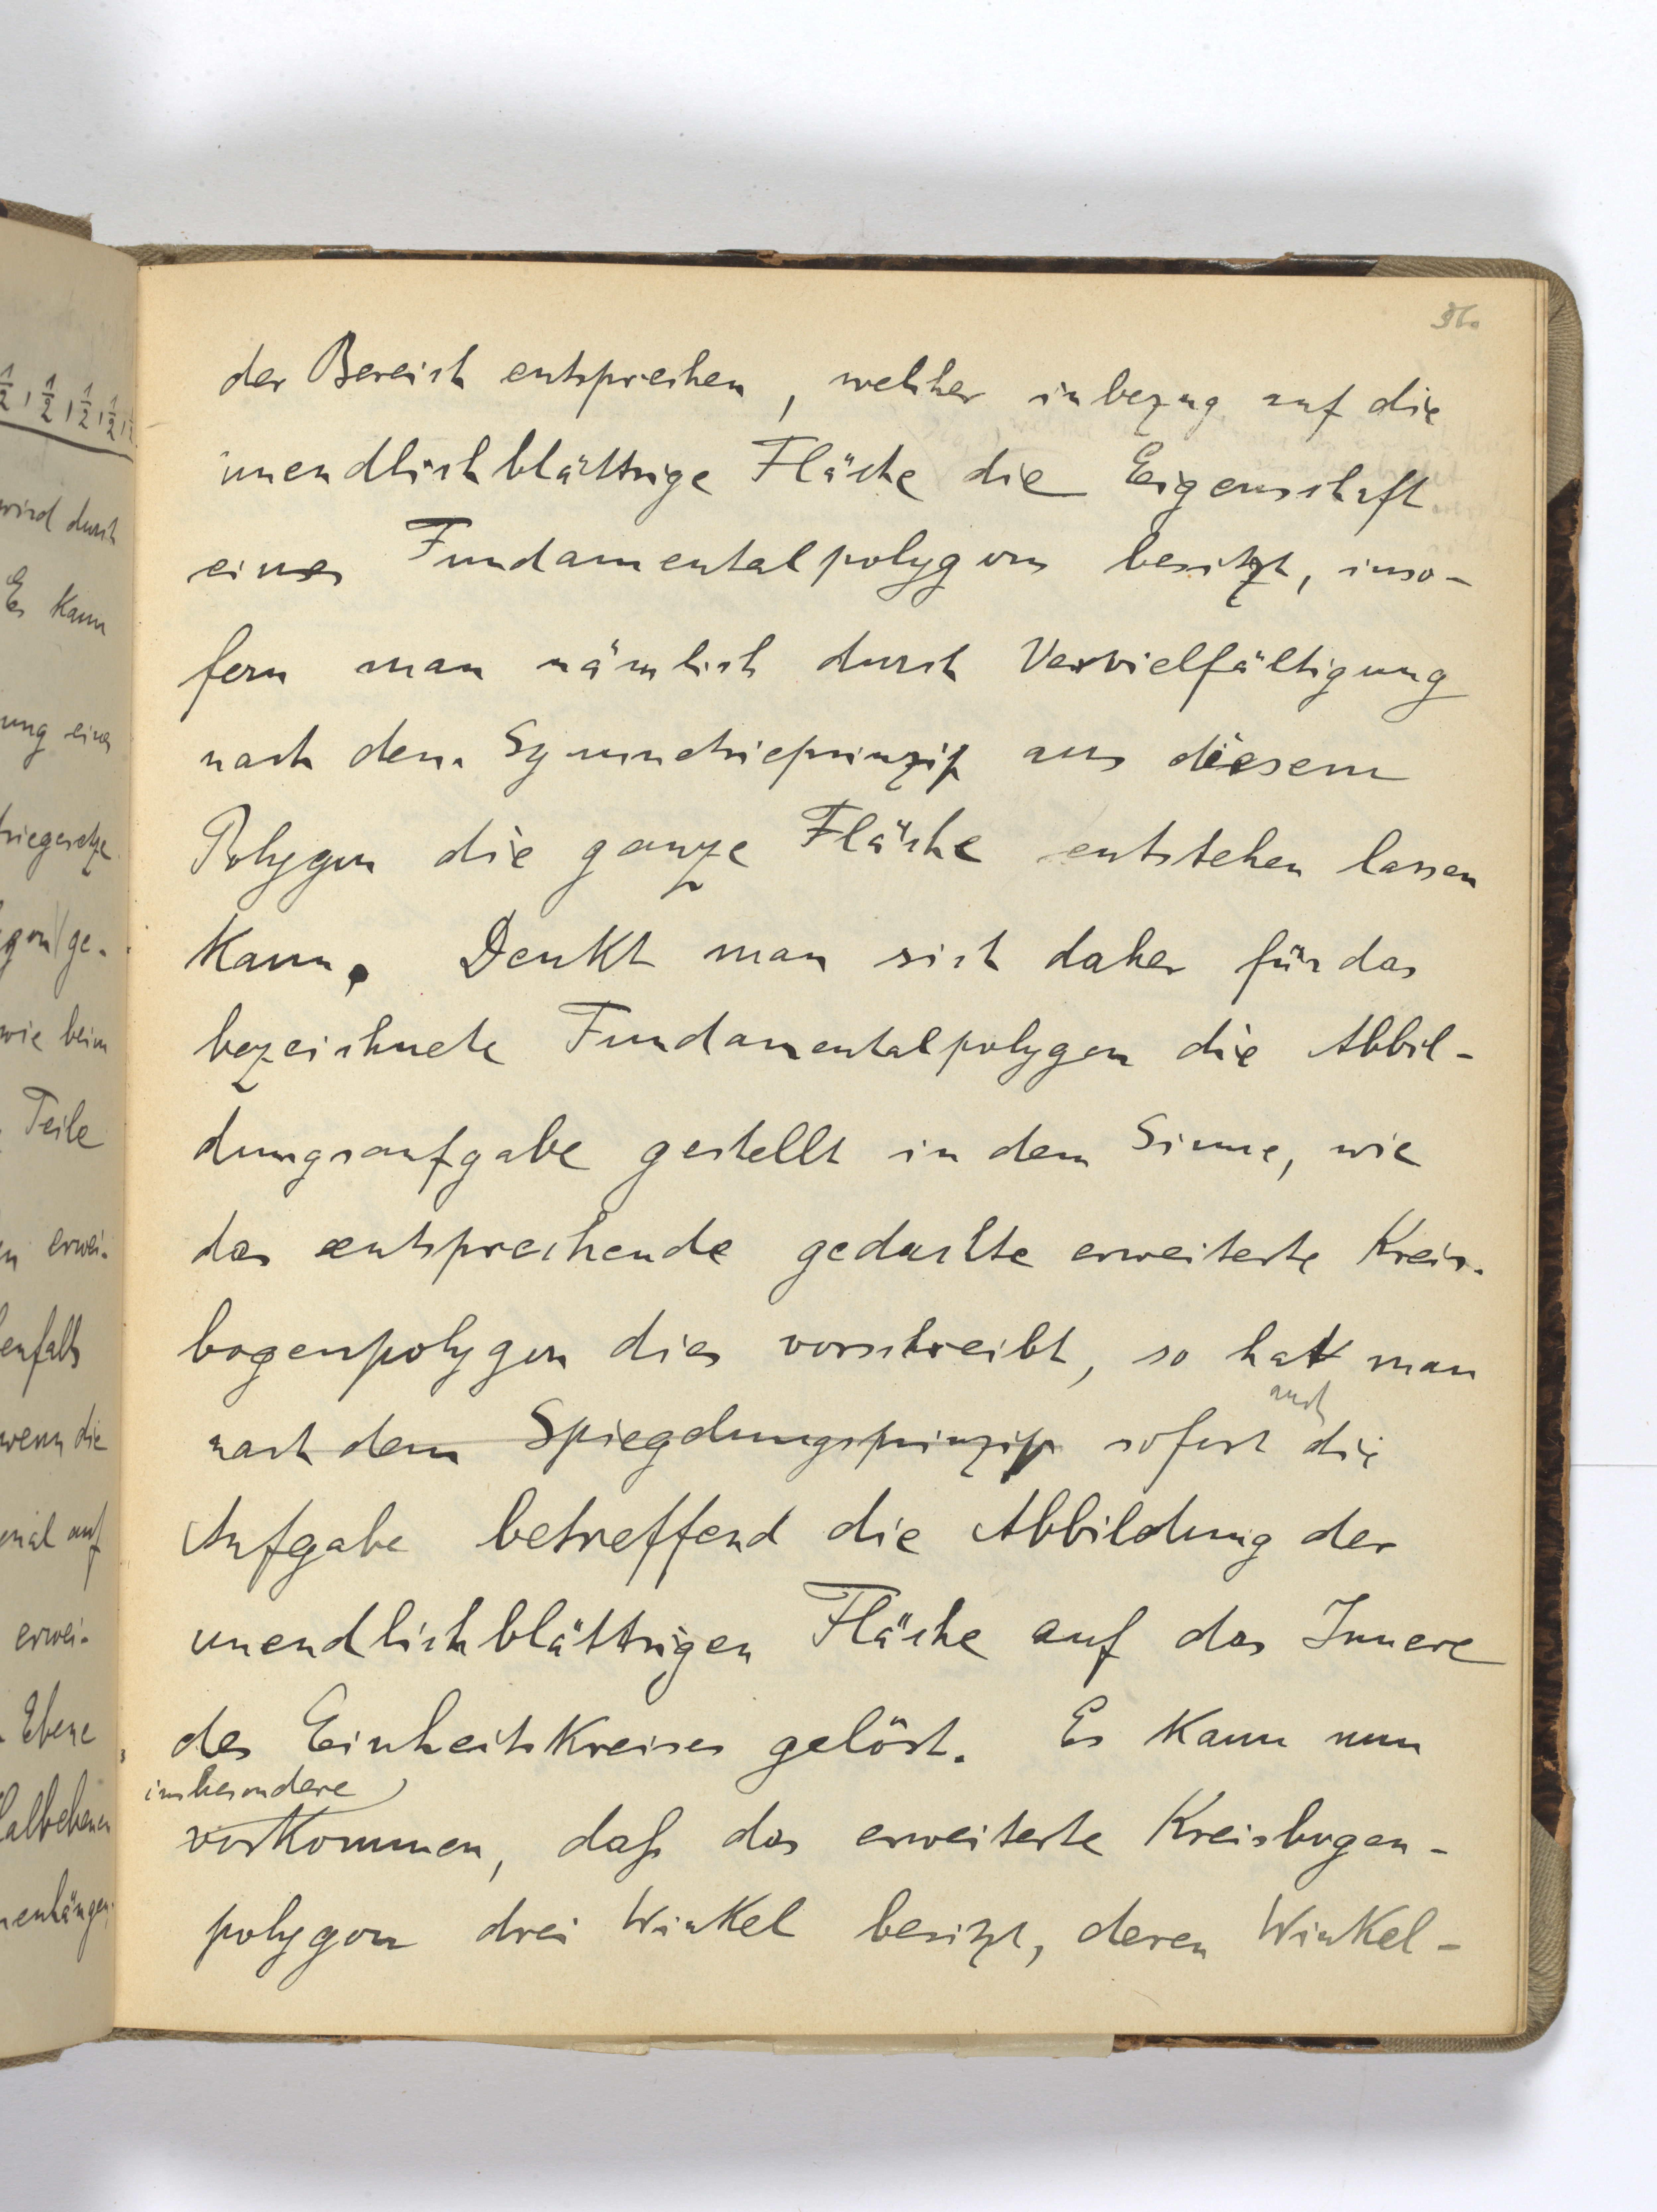 36.
der Bereich entsprechen, welcher inbezug auf die
unendlichblättrige Fläche die Eigenschaft
eines Fundamentalpolygons besitzt, inso-
fern man nämlich durch Vervielfältigung
nach dem Symmetrieprinzip aus diesem
Polygon die ganze Fläche entstehen lassen
kann. Denkt man sich daher für das
bezeichnete Fundamentalpolygon die Abbil-
dungsaufgabe gestellt in dem Sinne, wie
das entsprechende gedachte erweiterte Kreis-
bogenpolygon dies vorschreibt, so hat man
auch
nach dem Spiegelungsprinzip sofort die
Aufgabe betreffend die Abbildung der
unendlichblättrigen Fläche auf das Innere
des Einheitskreises gelöst. Es kann nun
insbesondere
vorkommen, daß das erweiterte Kreisbogen-
polygon drei Winkel besitzt, deren Winkel-
wird durch
Es kann
ung eines
wie beim
Teile
erwei-
enfalls
wenn die
erwei-
Ebene